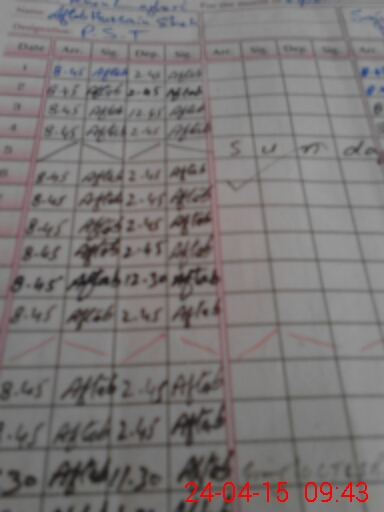 Name
Aftab Hussain Shah
Designation P.S.T
Date Arr. Sig. Dep. Sig. Arr. Sig. Dep. Sig. Arr.
1 8.45 Aftab 2.45 Aftab
2 8.45 Aftab 2.45 Aftab
3 8.45 Aftab 12.45 Aftab
4 8.45 Aftab 2.45 Aftab
5 S u n da
6 8.45 Aftab 2.45 Aftab
8.45 Aftab 2.45 Aftab
8.45 Aftab 2.45 Aftab
8.45 Aftab 2.45 Aftab
8.45 Aftab 12.30 Aftab
8.45 Aftab 2.45 Aftab
8.45 Aftab 2.45 Aftab
8.45 Aftab 2.45 Aftab
30 Aftab 11.30 Aftab
24-04-15 09:43